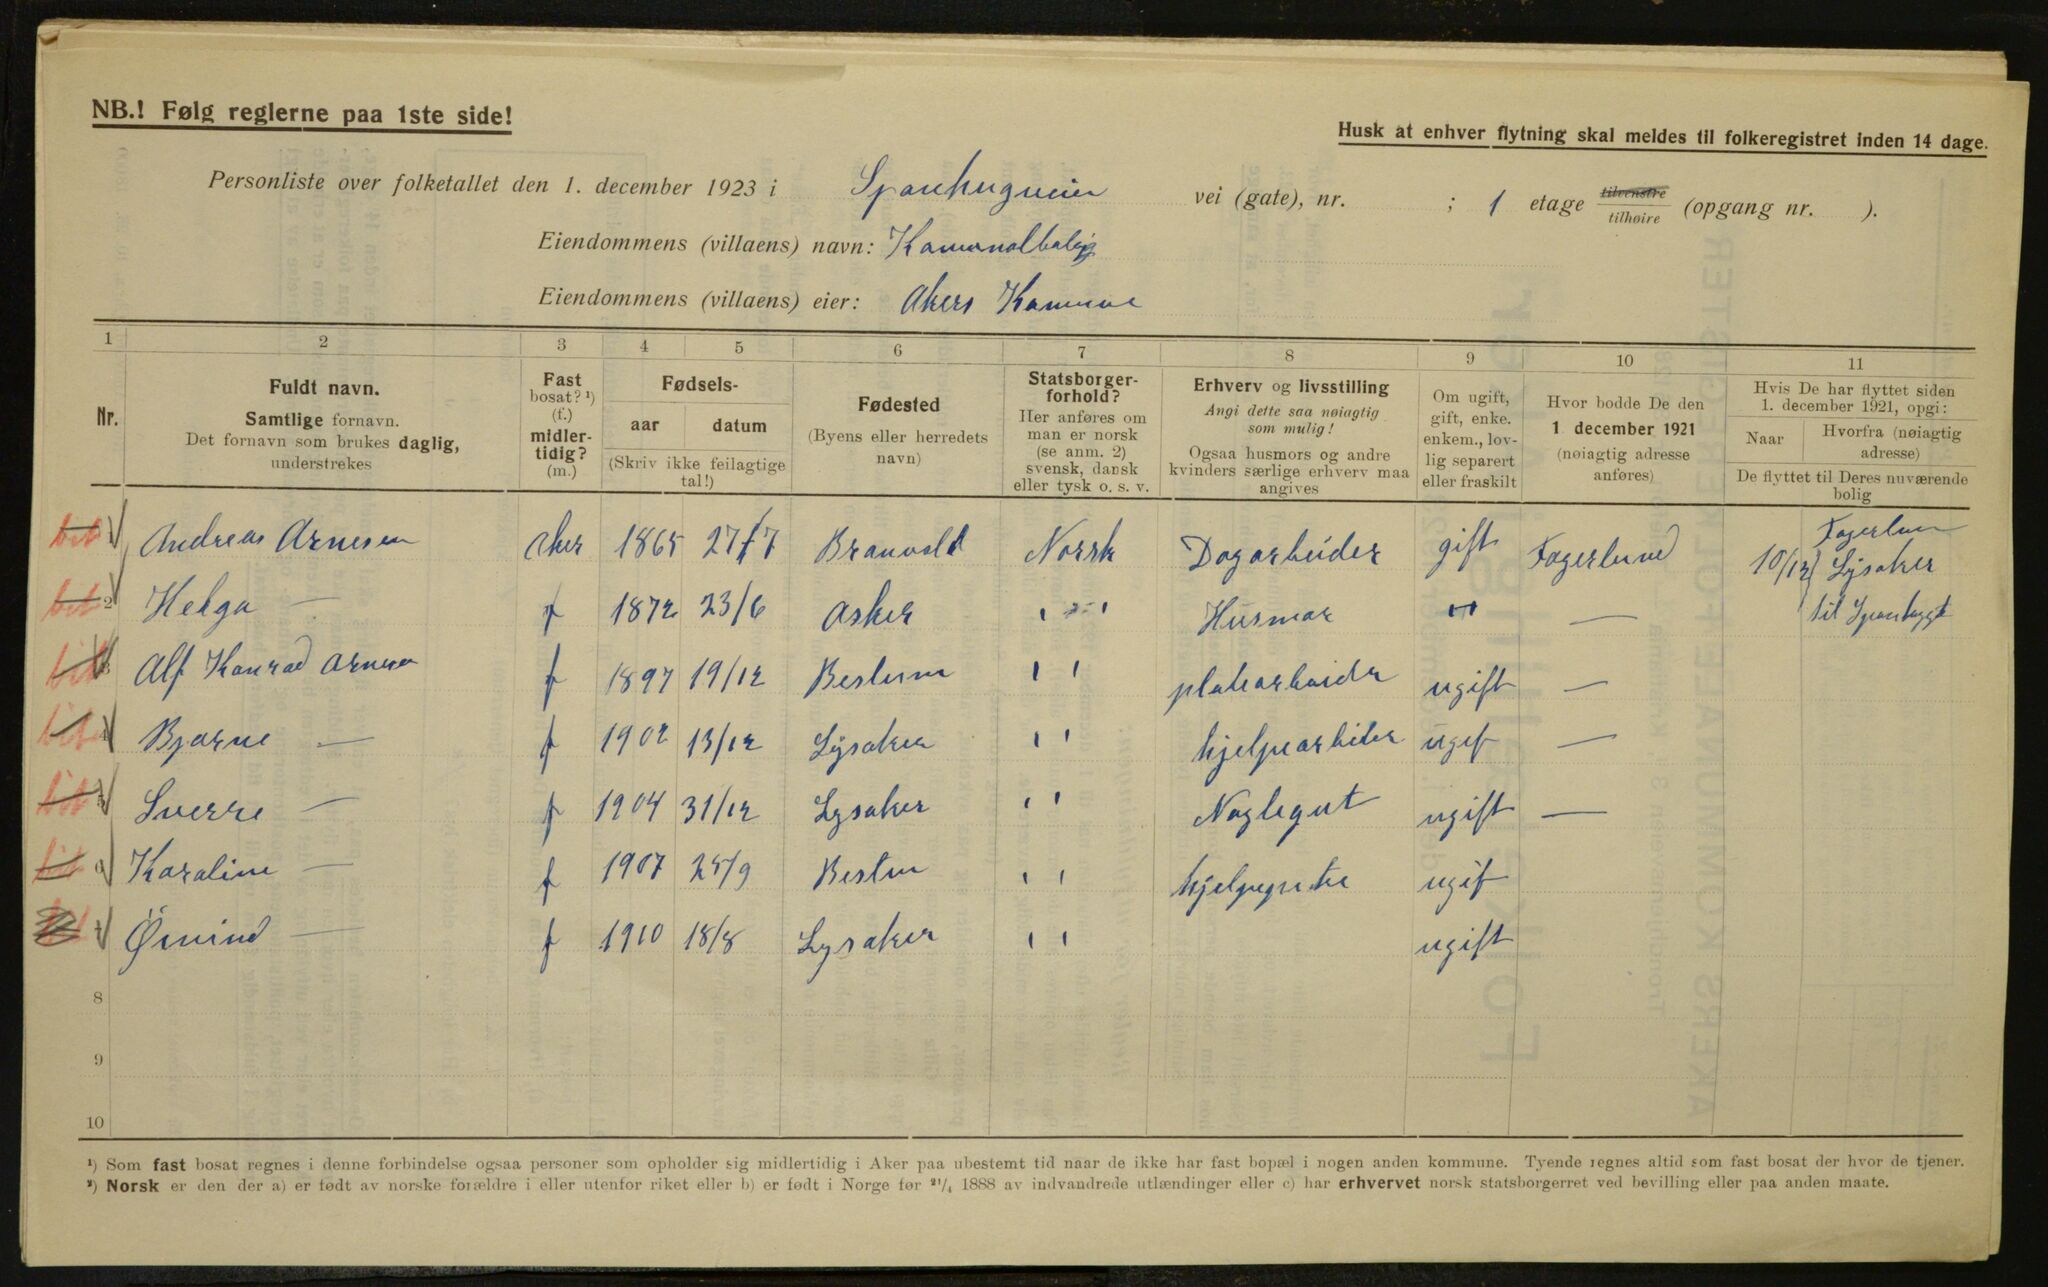 NB.! Følg reglerne paa 1ste side!
Husk at enhver flytning skal meldes til folkeregistret inden 14 dage.
Personliste over folketallet den 1. december 1923 i vei (gate), nr. ; 1 etage tilvenstre tilhøire (opgang nr. ).
Eiendommens (villaens) navn:
Eiendommens (villaens) eier: Akers Komune
1 2 3 4 5 6 7 8 9 10 11
Nr.
Fuldt navn.
Samtlige fornavn.
Det fornavn som brukes daglig,
understrekes
Fast
bosat? ¹)
(f.)
midler-
tidig?
(m.)
Fødsels-
aar datum
(Skriv ikke feilagtige
tal!)
Fødested
(Byens eller herredets
navn)
Statsborger-
forhold?
Her anføres om
man er norsk
(se anm. 2)
svensk, dansk
eller tysk o. s. v.
Erhverv og livsstilling
Angi dette saa nøiagtig
som mulig!
Ogsaa husmors og andre
kvinders særlige erhverv maa
angives
Om ugift,
gift, enke.
enkem., lov-
lig separert
eller fraskilt
Hvor bodde De den
1. december 1921
(nøiagtig adresse
anføres)
Hvis De har flyttet siden
1. december 1921, opgi:
Naar Hvorfra (nøiagtig
adresse)
De flyttet til Deres nuværende
bolig
bit 1 Andreas Arnesen Aker 1865 27/7 Branvold Norsk Dagarbeider gift Fagerlund 10/12 Fagerlun
Lysaker
bit 2 Helga — f 1872 23/6 Asker " " Husmor " — til
bit 3 Alf Konrad Arnesen f 1897 19/12 Bestum " " platearbeider ugift —
bit 4 Bjarne — f 1902 13/12 Lysaker " " hjelpearbeider ugif —
bit 5 Sverre — f 1904 31/12 Lysaker " " Naglegut ugift —
bit 6 Karoline — f 1907 25/9 Bestum " " ugif
bit 7 Öivind — f 1910 18/8 Lysaker " " ugift
8
9
10
¹) Som fast bosat regnes i denne forbindelse ogsaa personer som opholder sig midlertidig i Aker paa ubestemt tid naar de ikke har fast bopæl i nogen anden kommune. Tyende regnes altid som fast bosat der hvor de tjener.
²) Norsk er den der a) er født av norske forældre i eller utenfor riket eller b) er født i Norge før ²¹/₄ 1888 av indvandrede utlændinger eller c) har erhvervet norsk statsborgerret ved bevilling eller paa anden maate.